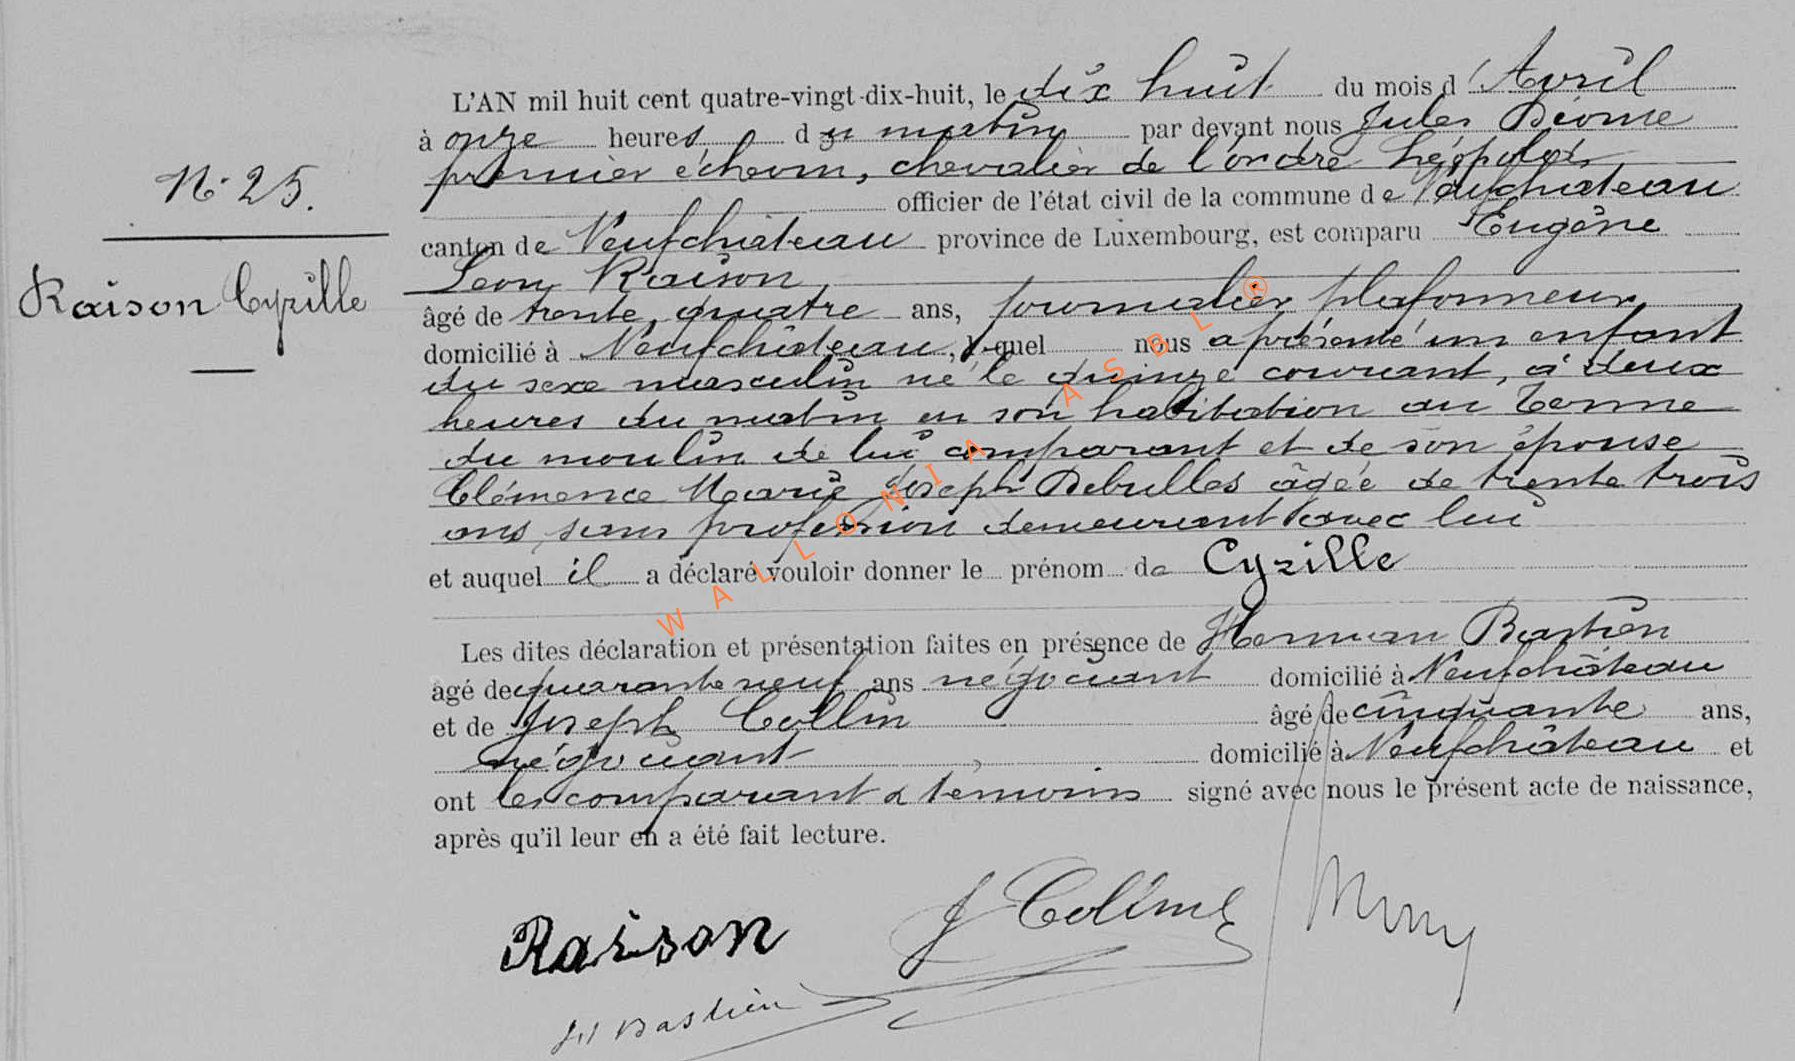 N° 25.
Raison Cyrille
L'AN mil huit cent quatre-vingt-dix-huit, le dix huit du mois d'Avril
à onze heures, du matin par devant nous Jules
premier échevin, chevalier de l'ordre Léopold,
officier de l'état civil de la commune de Neufchâteau
canton de Neufchâteau province de Luxembourg, est comparu Eugène
Léon Raison
âgé de trente quatre ans, journalier plafonneur,
domicilié à Neufchâteau, lequel nous a présenté un enfant
du sexe masculin né le quinze courant, à deux
heures du matin en son habitation au Terme
du moulin de lui comparant et de son épouse
Clémence Marie Joseph âgée de trente trois
ans, sans profession demeurant avec lui
et auquel il a déclaré vouloir donner le prénom de Cyrille
Les dites déclaration et présentation faites en présence de Herman Bastien
âgé de quarante neuf ans négociant domicilié à Neufchâteau
et de Joseph Collin âgé de cinquante ans,
négociant domicilié à Neufchâteau et
ont les comparant & témoins signé avec nous le présent acte de naissance,
après qu'il leur en a été fait lecture.
Raison
J Collin
H Bastien
WALLONIA ASBL ®